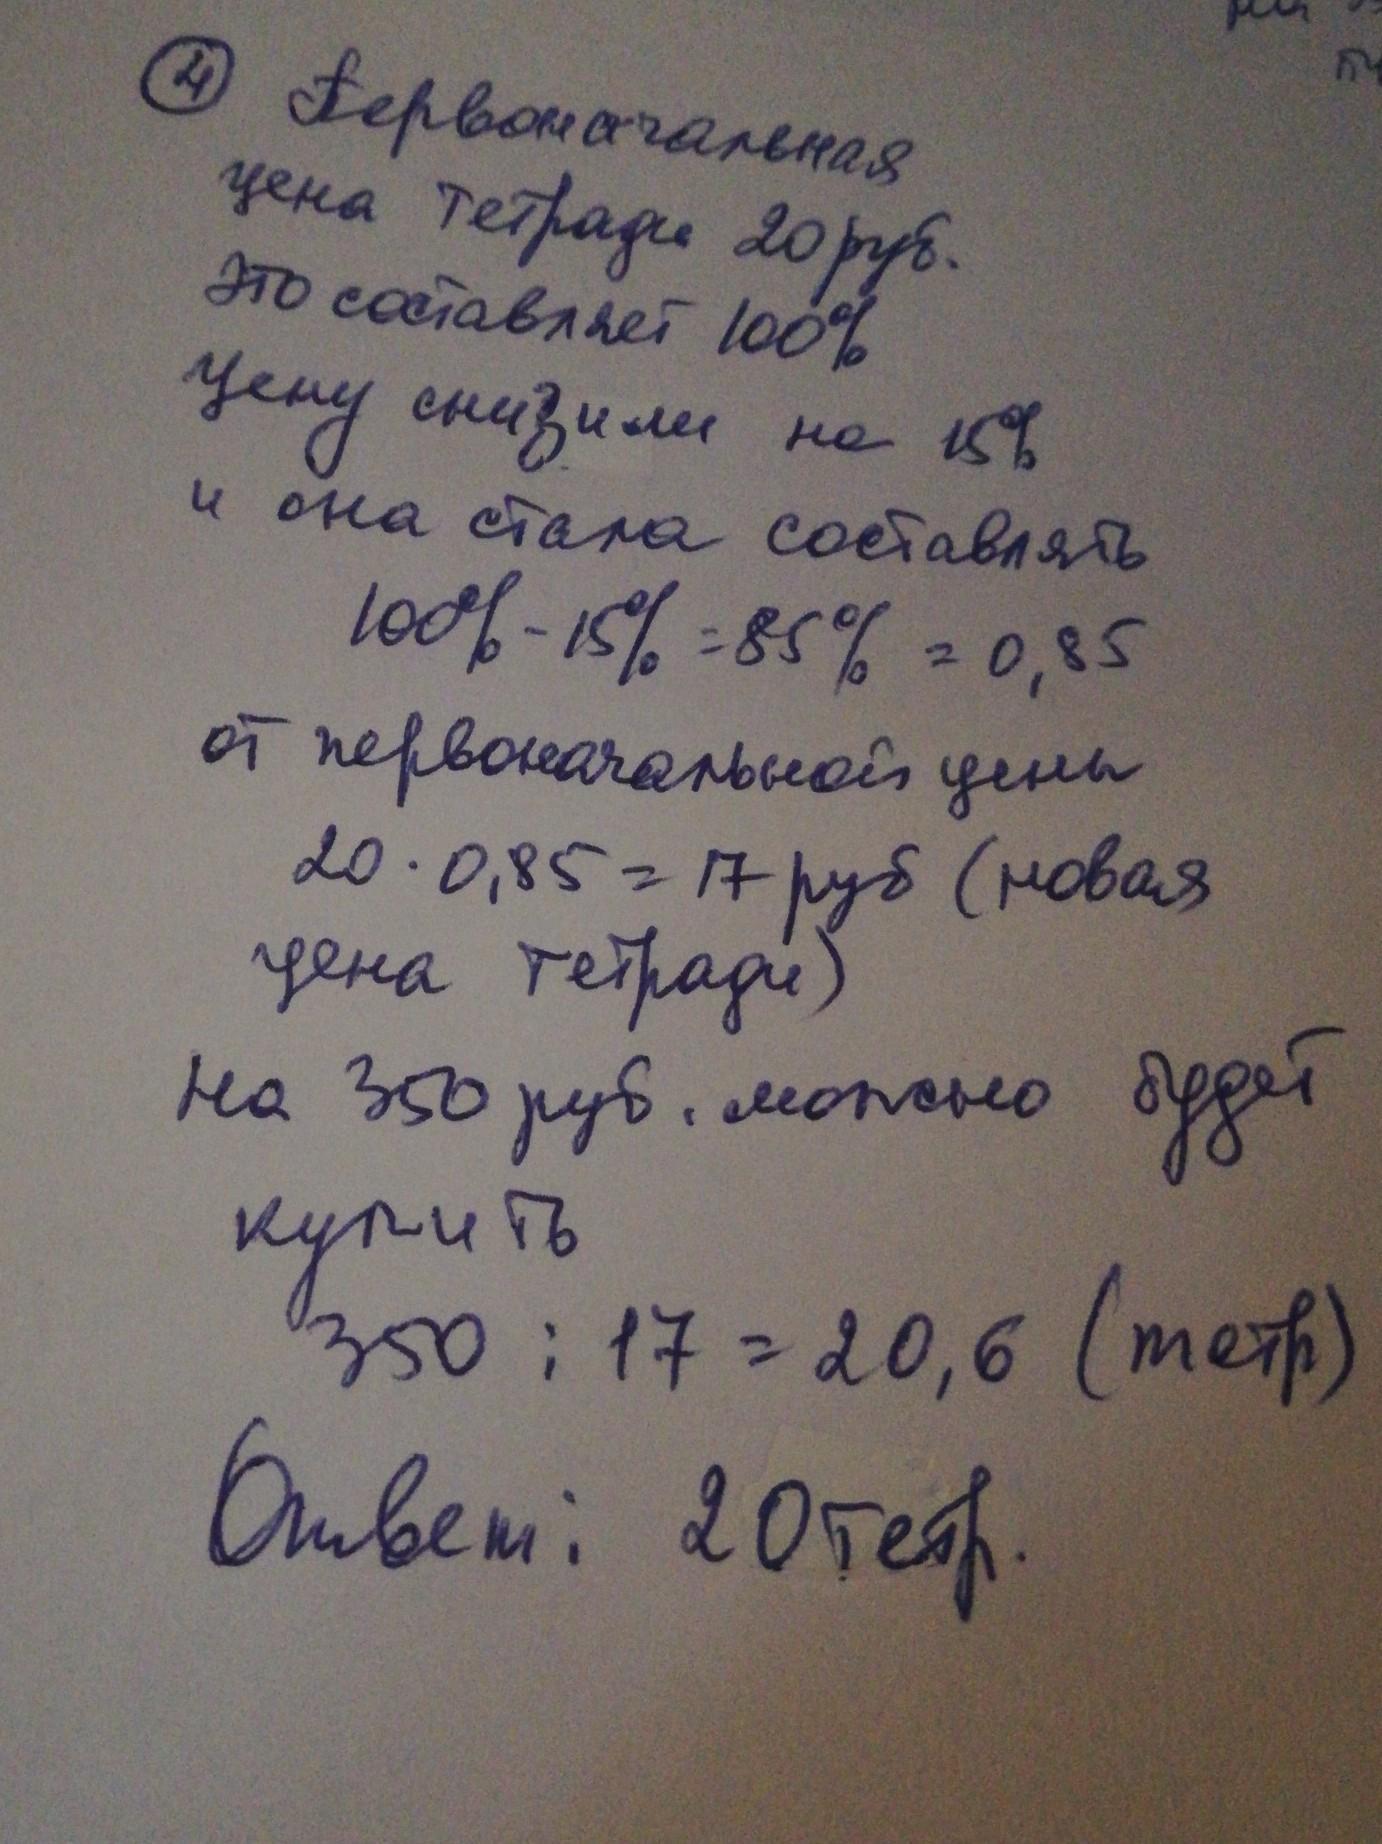 4 Первоначальная
цена тетради 20 руб.
Это составляет 100%
Цену снизили на 15%
и она стала составлять
100% - 15% = 85% = 0,85
от первоначальной цены
20 · 0,85 = 17 руб (новая
цена тетради)
На 350 руб. можно будет
купить
350 : 17 = 20,6 (тетр)
Ответ: 20 тетр.